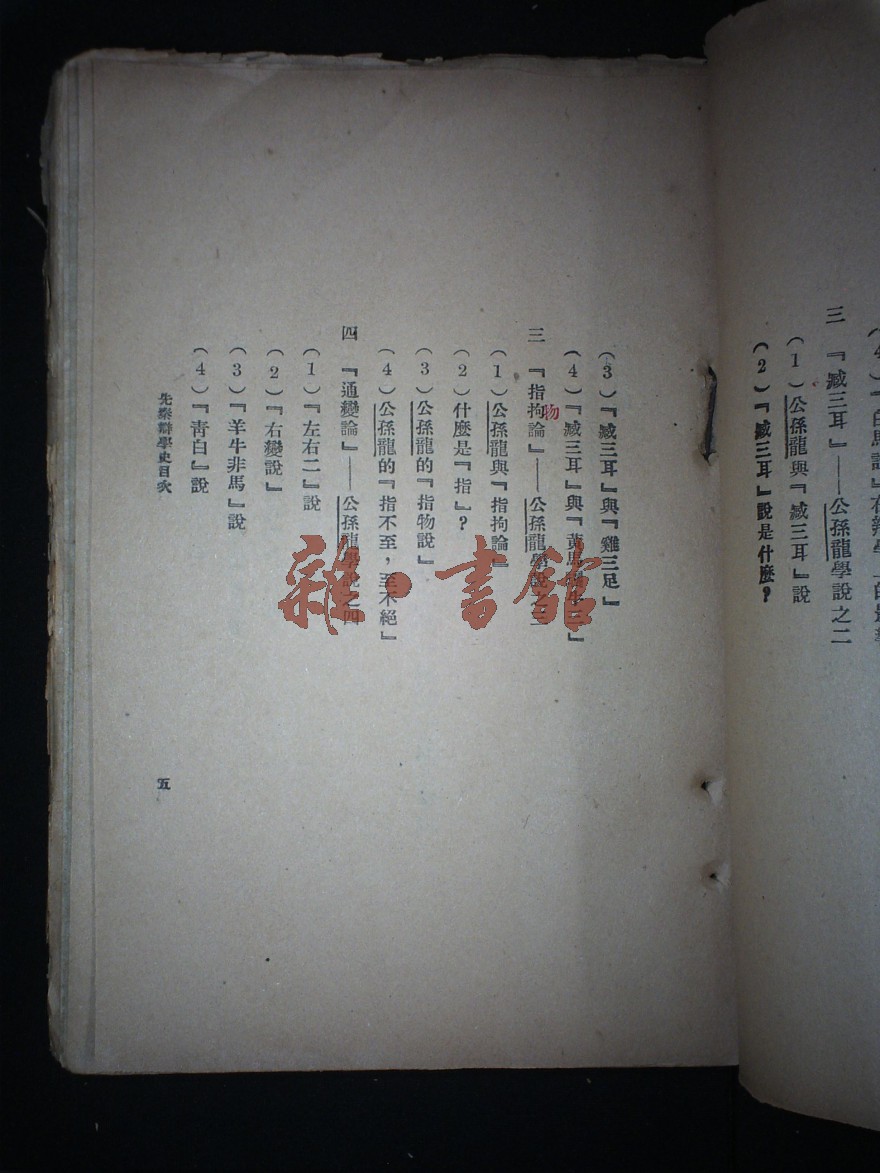 三 『臧三耳』——公孫龍學說之二
（1）公孫龍與『臧三耳』說
（2）『臧三耳』說是什麼？
（3）『臧三耳』與『雞三足』
（4）『臧三耳』與『黃馬
三 『指拘論』——公孫龍學說之三
物
（1）公孫龍與『指拘論』
（2）什麼是『指』？
（3）公孫龍的『指物說』
（4）公孫龍的『指不至，至不絕』
四 『通變論』——公孫龍學說之四
（1）『左右二』說
（2）『右變說』
（3）『羊牛非馬』說
（4）『靑白』說
先秦辯學史目次
五
雜·書館